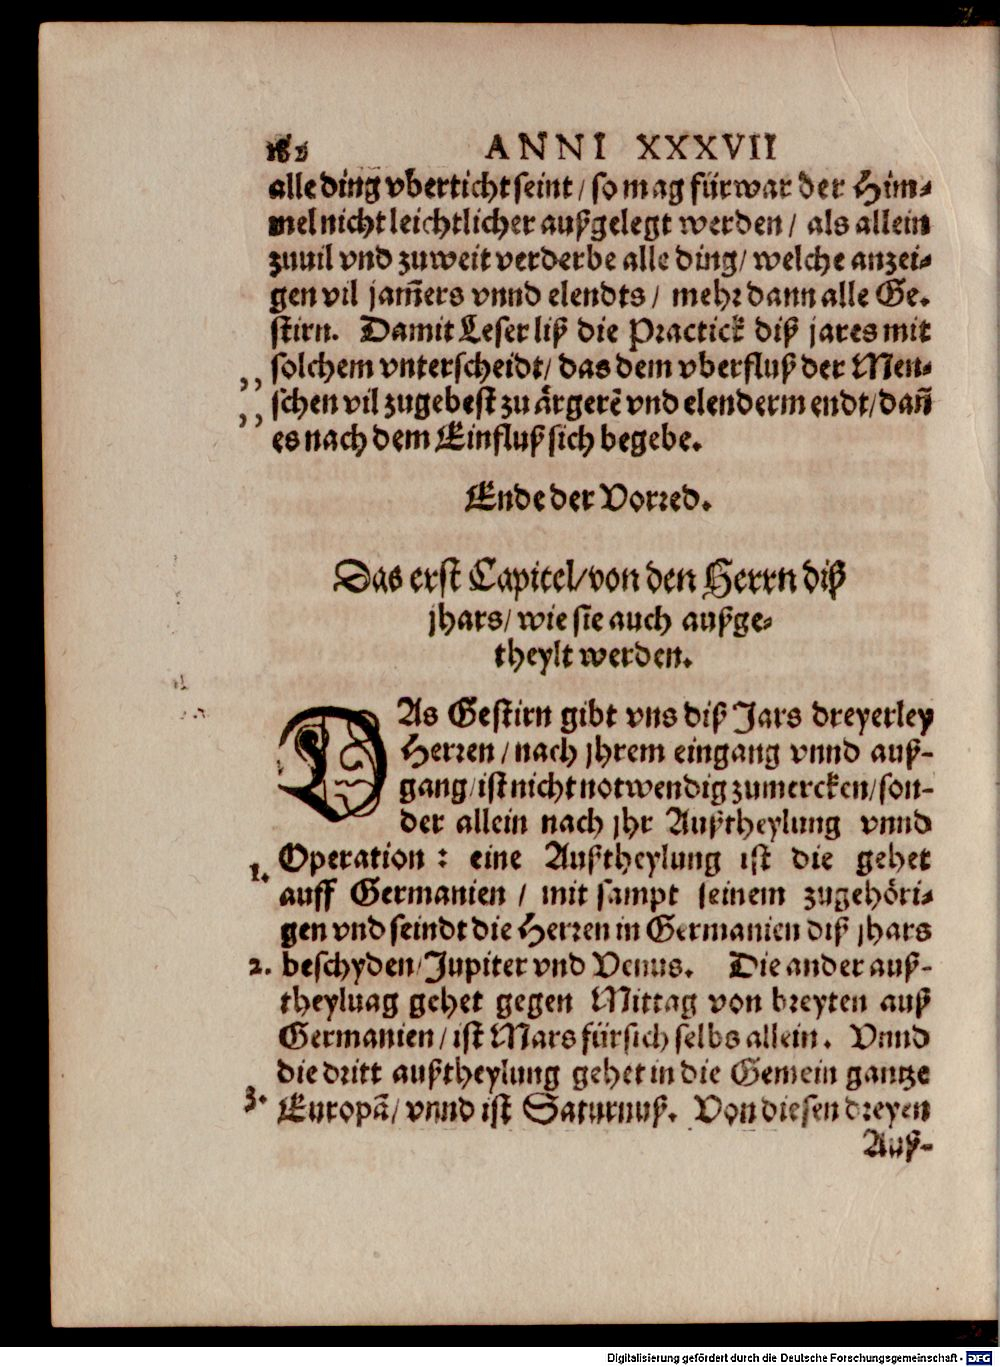 ANNI XXXVII
alle ding vberticht seint / so mag fürwar der Him-
mel nicht leichtlicher außgelegt werden / als allein
zuuil vnd zuweit verderbe alle ding / welche anzei-
gen vil jam̄ers vnnd elendts / mehr dann alle Ge-
stirn. Damit Leser liß die Practick diß jares mit
,, solchem vnterscheidt / das dem vberfluß der Men-
,, schen vil zugebest zu ärgerẽ vnd elenderm endt / dañ
es nach dem Einfluß sich begebe.
Ende der Vorred.
Das erst Capitel / von den Herrn diß
jhars / wie sie auch außge-
theylt werden.
DAs Gestirn gibt vns diß Jars dreyerley
Herren / nach jhrem eingang vnnd auß-
gang / ist nicht notwendig zumercken / son-
der allein nach jhr Außtheylung vnnd
1. Operation : eine Außtheylung ist die gehet
auff Germanien / mit sampt seinem zugehöri-
gen vnd seindt die Herren in Germanien diß jhars
2. beschyden / Jupiter vnd Venus. Die ander auß-
theyluag gehet gegen Mittag von breyten auß
Germanien / ist Mars für sich selbs allein. Vnnd
die dritt außtheylung gehet in die Gemein gantze
3. Europã / vnnd ist Saturnuß. Von diesen dreyen
Auß-
Digitalisierung gefördert durch die Deutsche Forschungsgemeinschaft - DFG